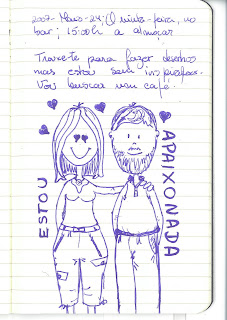 2007 - Maio - 24; Quinta-feira, no
bar; 15:00h a almoçar
Trouxe-te para fazer desenhos
mas estou sem inspiração.
Vou buscar um café.
ESTOU
APAIXONADA